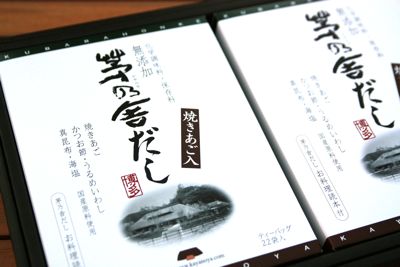 KUBARANOHA
化学調味料・保存料
無添加
茅乃舎だし
博多
焼きあご入
焼きあご
かつお節・うるめいわし
真昆布・海塩
国産原料使用
茅乃舎だし お料理読本付
www.kayanoya.com
ティーバッグ
22袋入
無添加
茅乃舎だし
博多
焼きあご
かつお節・うるめいわし
真昆布・海塩
国産原料使用
茅乃舎だし お料理読本付